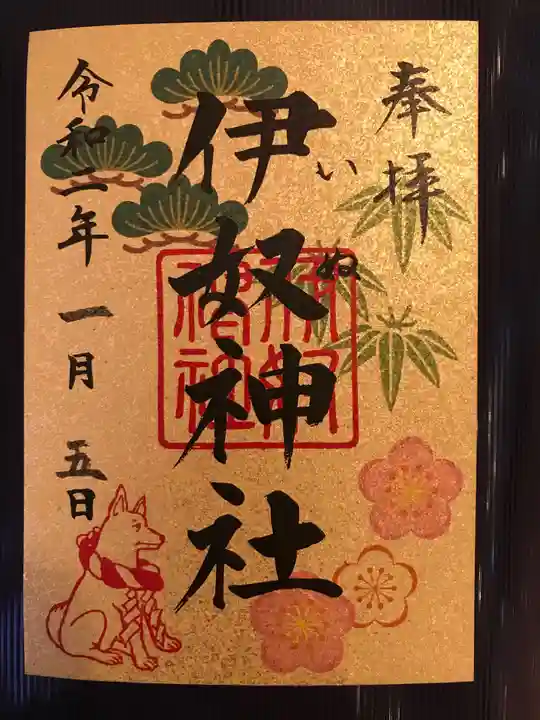 奉拝
伊奴神社
いぬ
令和二年 一月 五日